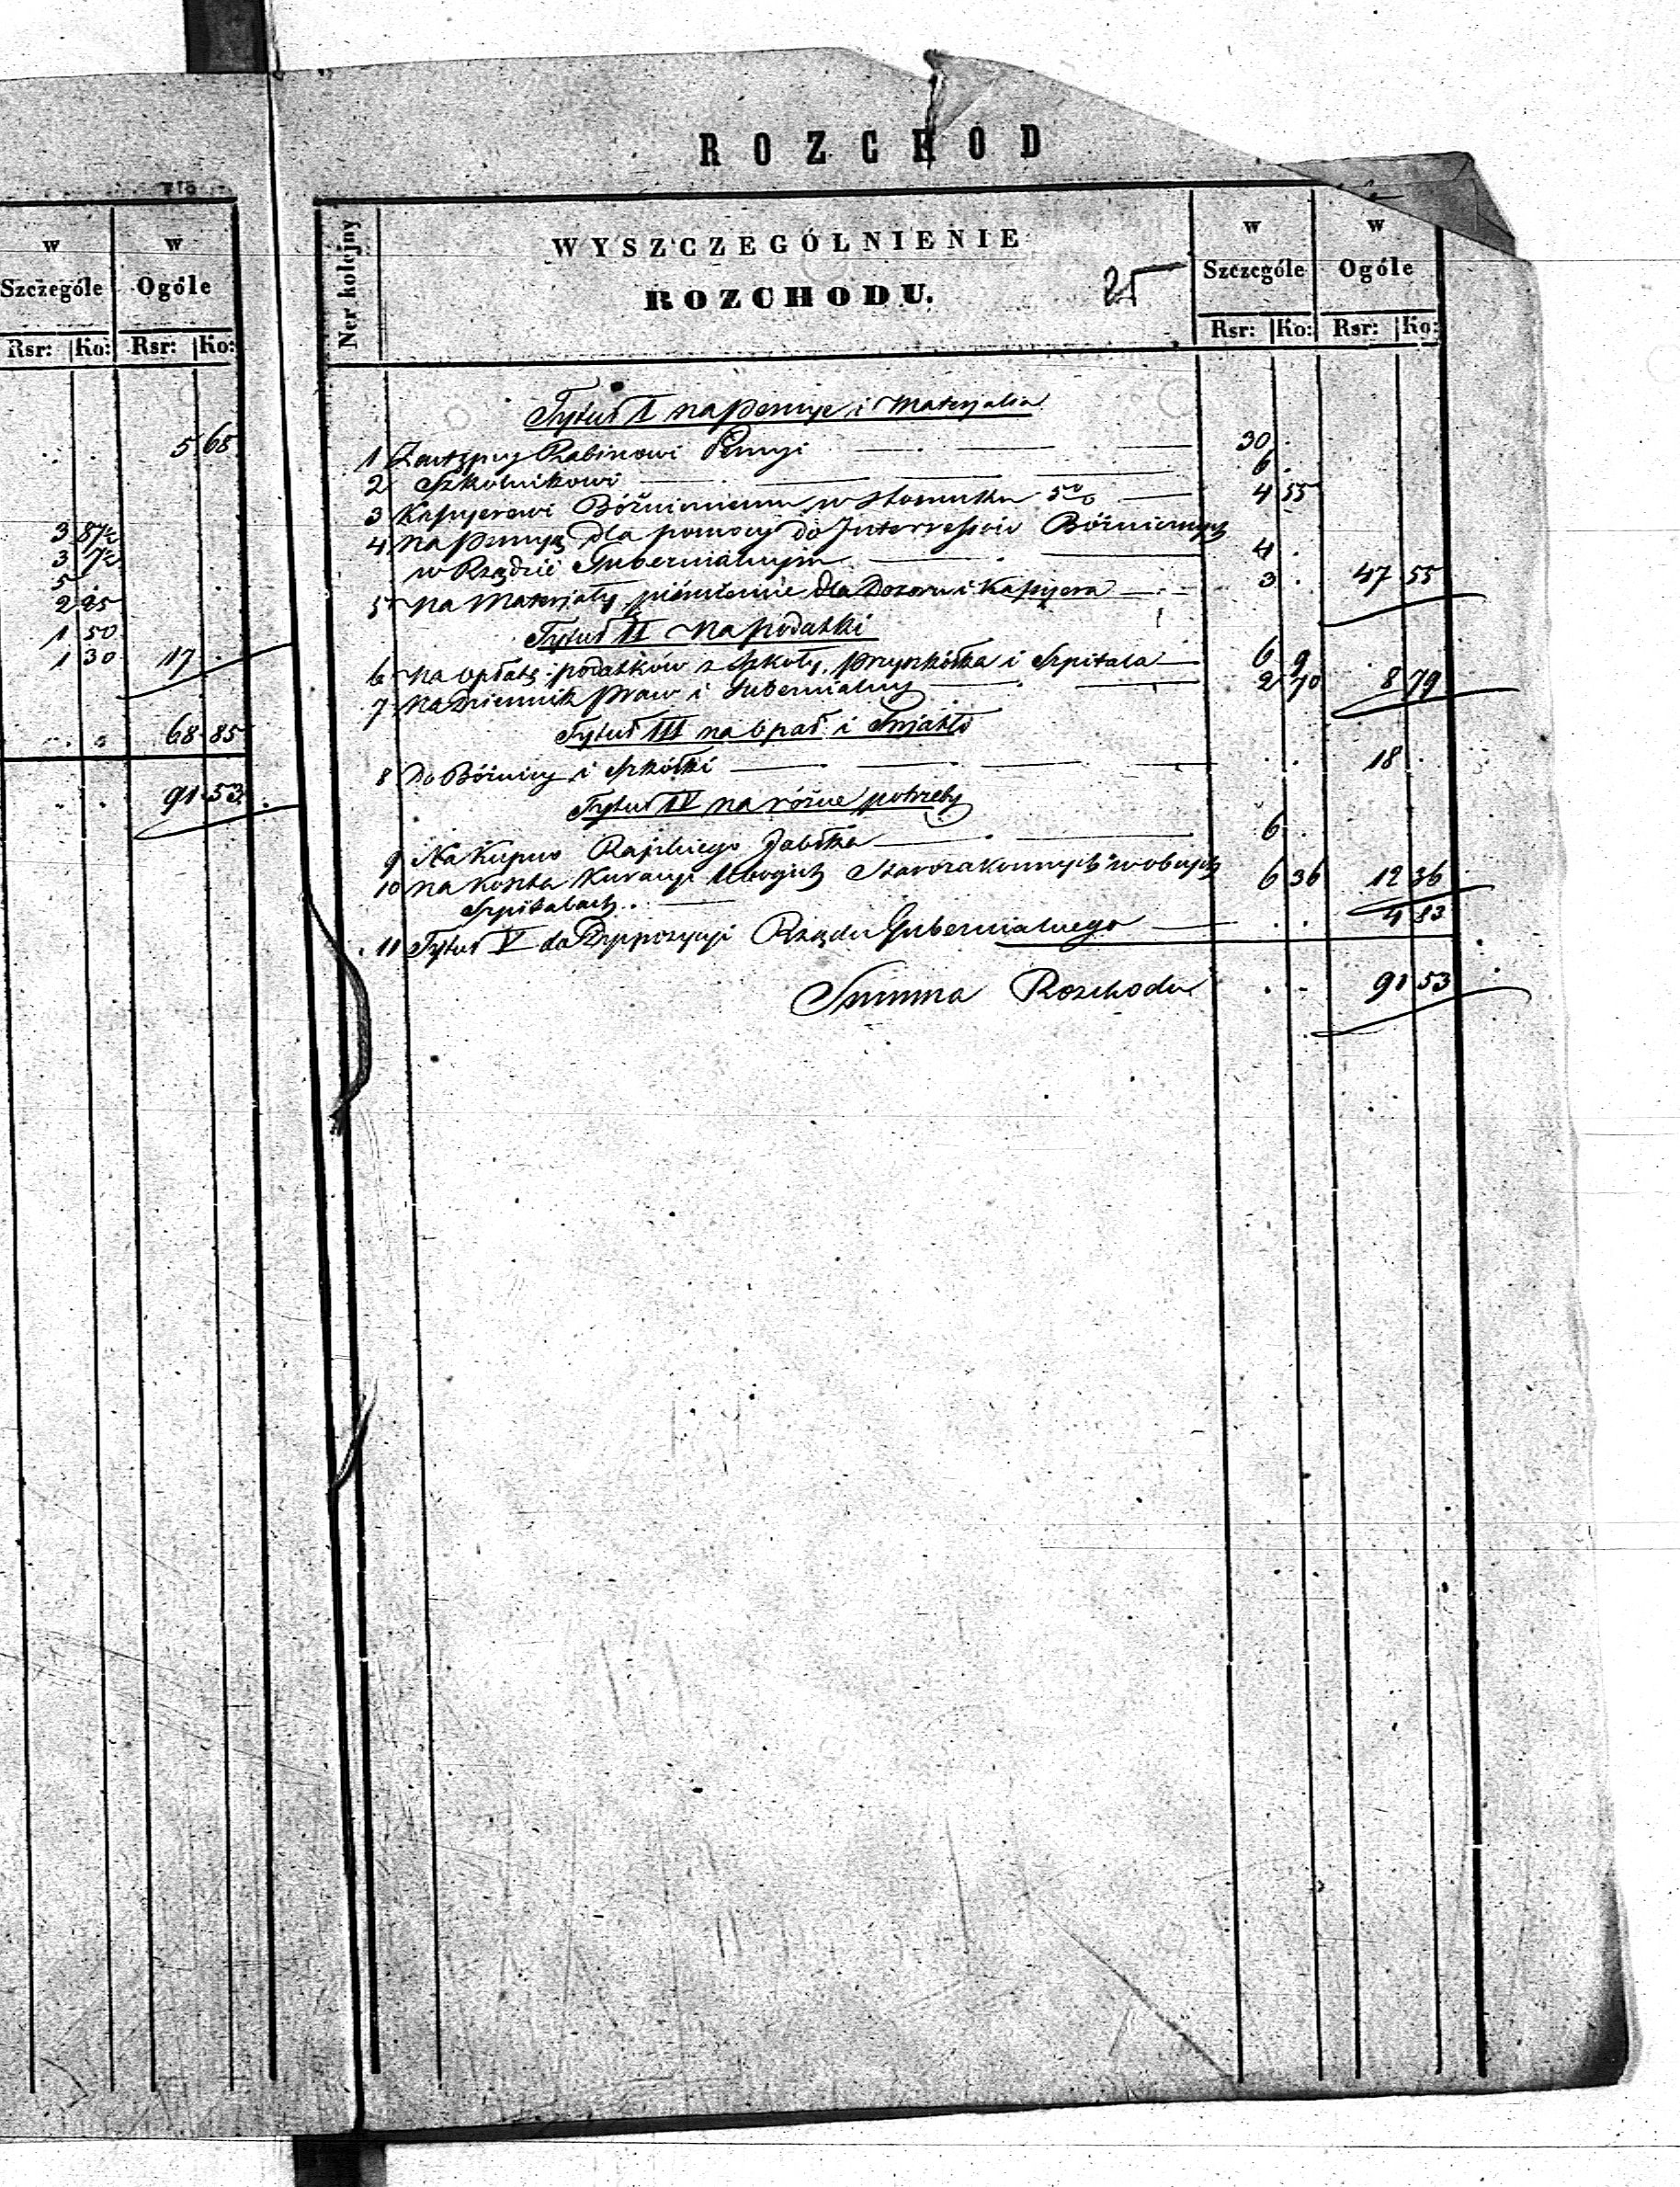 w Szczególe
w Ogóle
Rsr: Ko: Rsr: Ko:
5 65
3 87½
3 7½
5 .
2 25
1 50
1 30 17 .
68 85
91 53
ROZCHÓD
Ner kolejny
WYSZCZEGÓLNIENIE
ROZCHODU.
25
w Szczególe
w Ogóle
Rsr: Ko: Rsr: Ko:
Tytuł I na pensye i Materyalia
1 Zastępcy Rabinowi Pensyi 30 .
2 Szkolnikowi 6 .
3 Kassyerowi Bóżnicznemu w stosunku 5% 4 55
4 na pensyą dla pomocy do Interessów Bóżnicznych
w Rządzie Gubernialnym 4 .
5 na Materyały piśmienne dla Dozoru i Kassyera 3 . 47 55
Tytuł II na podatki
6 na opłatę podatków z szkoły, przyszkółka i Szpitala 6 9
7 na dziennik praw i Gubernialny 2 70 8 79
Tytuł III na opał i Światło
8 do Bóżnicy i szkółki 18 .
Tytuł IV na różne potrzeby
9 Na kupno Rajskiego Jabłka 6 .
10 na koszta kuracyi Ubogich Starozakonnych w obcych 6 36 12 36
Szpitalach
11 Tytuł V do Dyspozycyi Rządu Gubernialnego 4 83
Summa Rozchodu 91 53